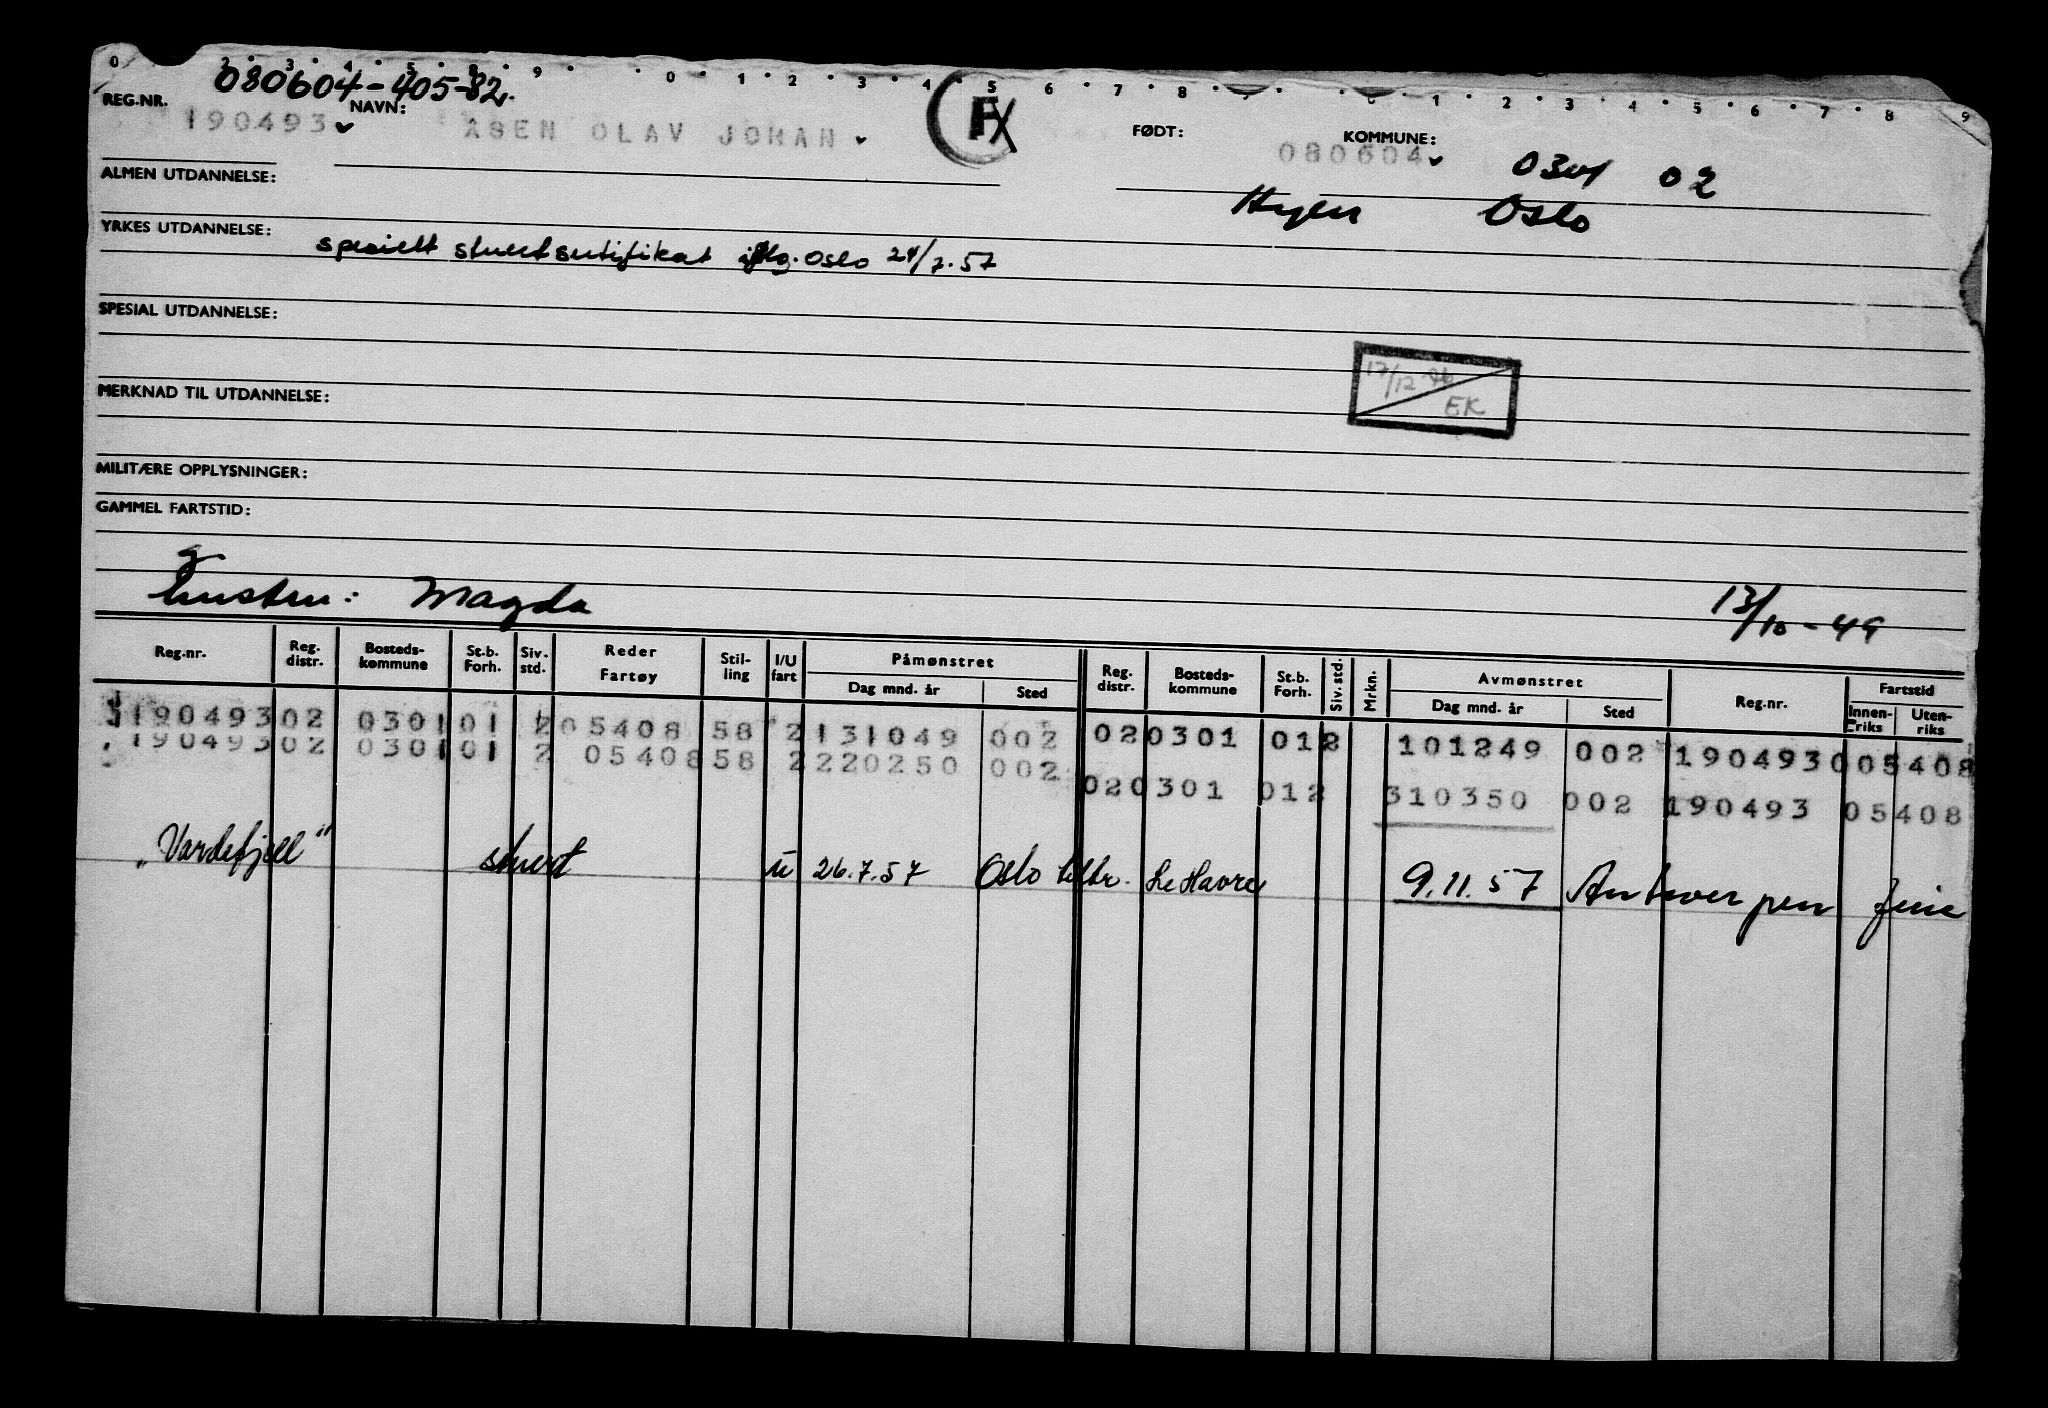 0 2 3 4 5 8 9 0 1 2 3 4 5 6 7 8 0 1 2 3 4 5 6 7 8 9
080604-405-82.
REG.NR. NAVN: FØDT: KOMMUNE:
190493 ÅSEN OLAV JOHAN FX 080604 0301 02
ALMEN UTDANNELSE: Hyen Oslo
YRKES UTDANNELSE: spesielt stuertsertifikat iflg. Oslo 24/7.57
SPESIAL UTDANNELSE:
17/12 EK
MERKNAD TIL UTDANNELSE:
MILITÆRE OPPLYSNINGER:
GAMMEL FARTSTID:
hustru: Magda 13/10-49
Reg.nr. Reg. distr. Bosteds- kommune St.b. Forh. Siv. std. Reder Fartøy Stil- ling I/U fart Påmønstret Dag mnd. år Sted Reg. distr. Bosteds- kommune St.b. Forh. Siv. std. Mrkn. Avmønstret Dag mnd. år Sted Reg.nr. Fartstid Innen- riks Uten- riks
190493 02 0301 01 2 05408 58 2 131049 002 02 0301 01 2 101249 002 190493 0 05408
190493 02 0301 01 2 05408 58 2 220250 002 02 0301 01 2 310350 002 190493 05408
"Vardefjell" stuert u 26.7.57 Oslo tiltr. Le Havre 9.11.57 Antwerpen